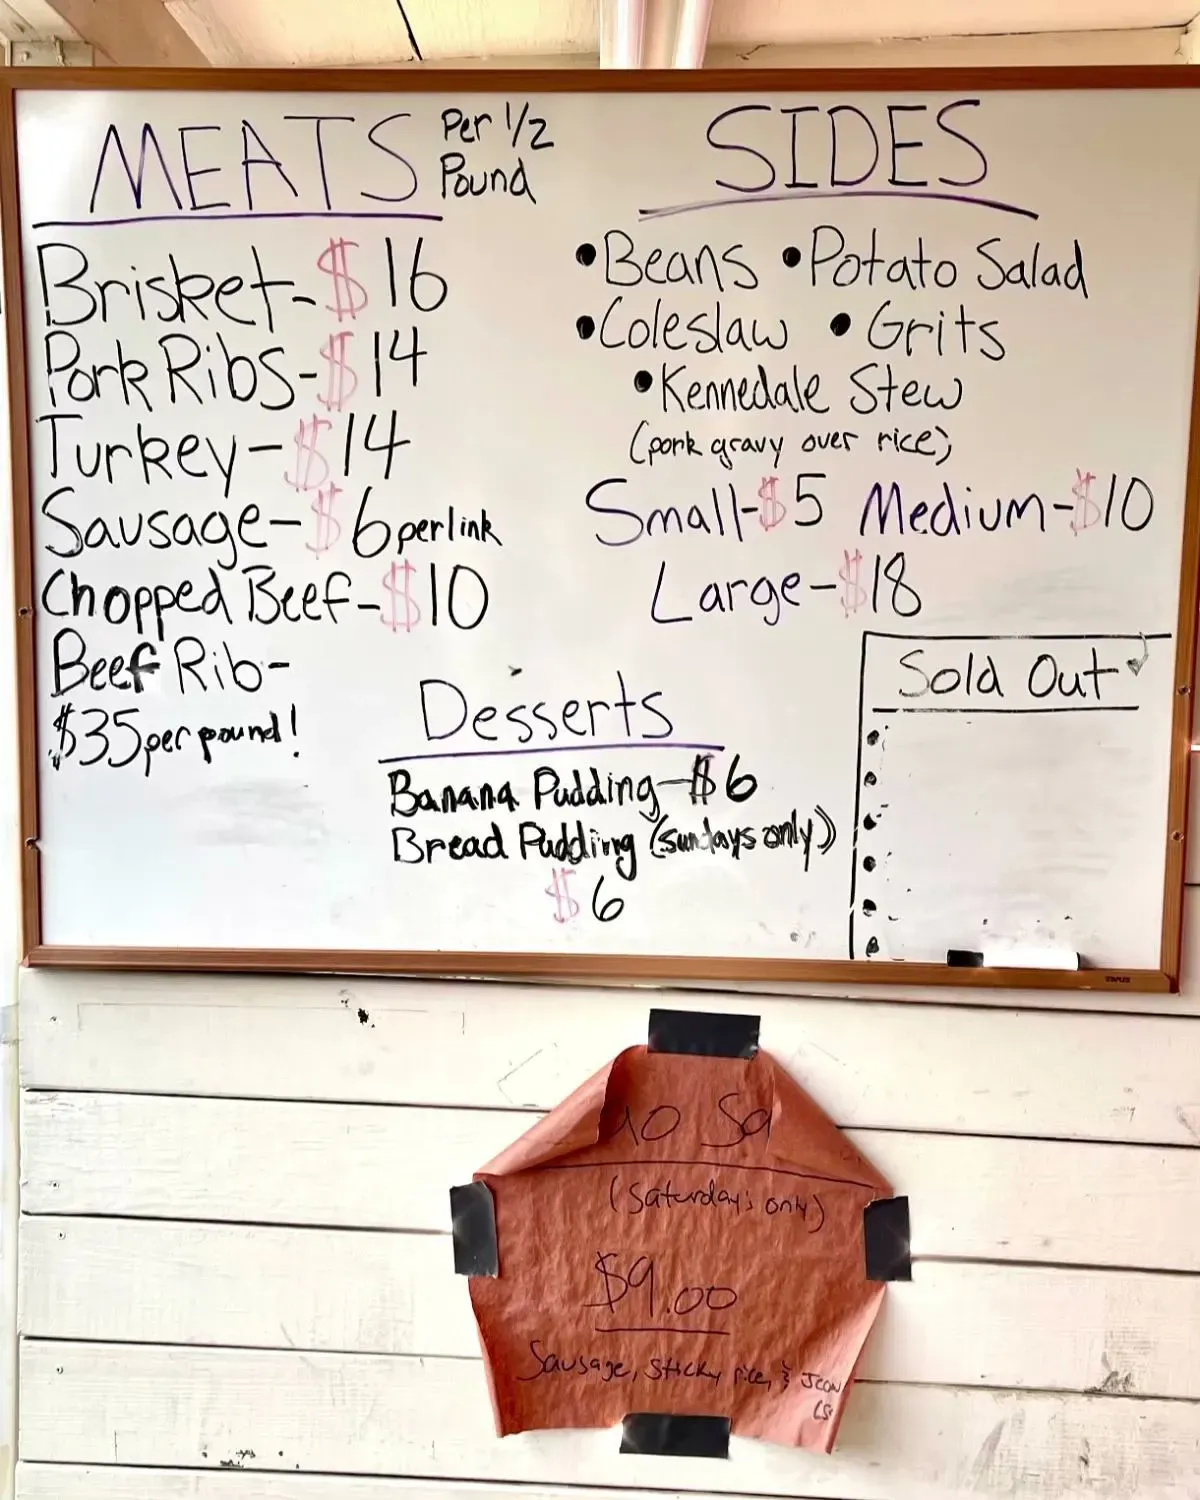 MEATS Per 1/2 Pound
Brisket-$16
Pork Ribs-$14
Turkey-$14
Sausage-$6 per link
Chopped Beef-$10
Beef Rib-
$35 per pound!
SIDES
•Beans •Potato Salad
•Coleslaw •Grits
•Kennedale Stew
(pork gravy over rice)
Small-$5 Medium-$10
Large-$18
Desserts
Banana Pudding-$6
Bread Pudding (sundays only)
$6
Sold Out
STAPLES
(Saturday's only)
$9.00
Sausage, sticky rice, &